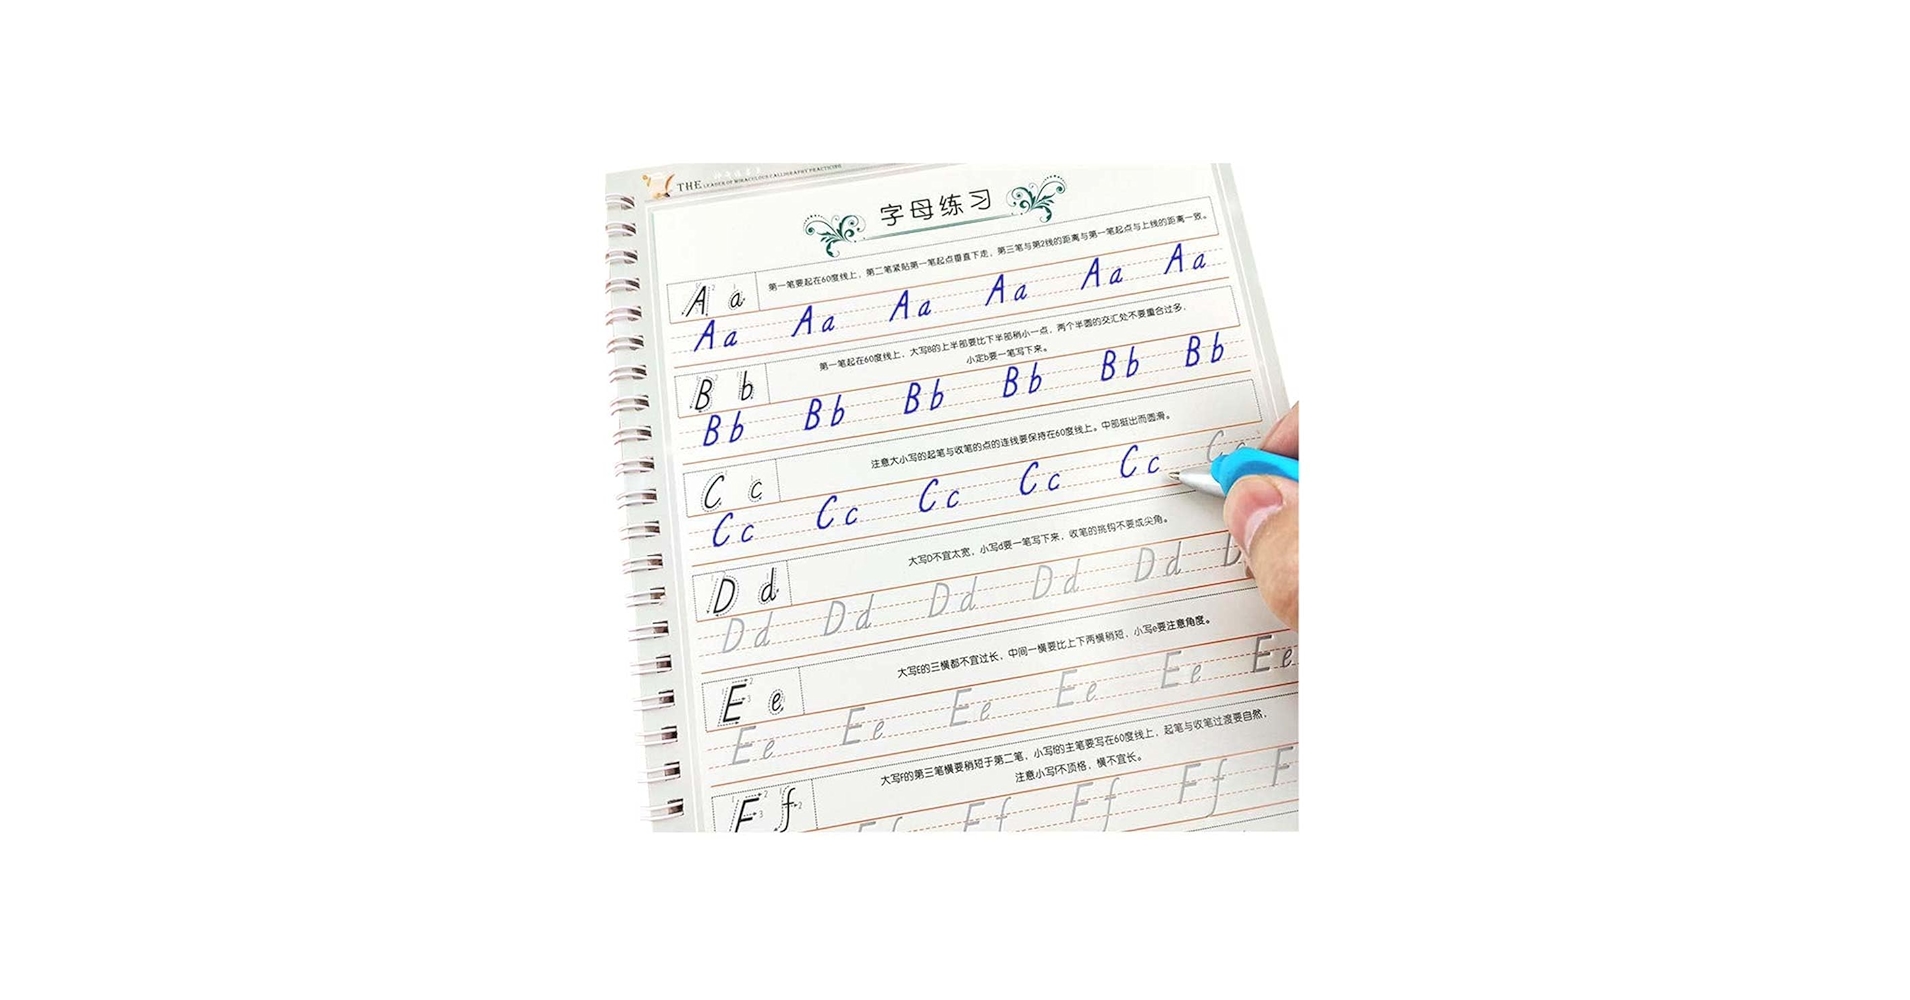 THE LEADER OF MIRACULOUS CALLIGRAPHY PRACTICING
字母练习
A a 第一笔要起在60度线上，第二笔紧贴第一笔起点垂直下走，第三笔与第2线的距离与第一笔起点与上线的距离一致。
Aa Aa Aa Aa Aa Aa
B b 第一笔起在60度线上，大写B的上半部要比下半部稍小一点，两个半圆的交汇处不要重合过多，
小定b要一笔写下来。
Bb Bb Bb Bb Bb Bb
C c 注意大小写的起笔与收笔的点的连线要保持在60度线上。中部挺出而圆滑。
Cc Cc Cc Cc Cc Cc
D d 大写D不宜太宽，小写d要一笔写下来，收笔的挑钩不要成尖角。
Dd Dd Dd Dd Dd D
E e 大写E的三横都不宜过长，中间一横要比上下两横稍短，小写e要注意角度。
Ee Ee Ee Ee Ee Ee
F f 大写F的第三笔横要稍短于第二笔，小写f的主笔要写在60度线上，起笔与收笔过渡要自然，
注意小写f不顶格，横不宜长。
Ff Ff Ff F